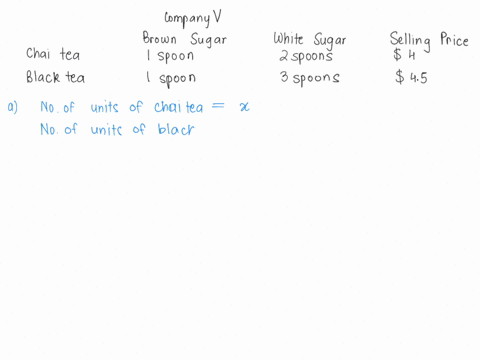 Company V
Brown Sugar White Sugar Selling Price
Chai tea 1 spoon 2 spoons $ 4
Black tea 1 spoon 3 spoons $ 4.5
a) No. of units of chai tea = x
No. of units of black